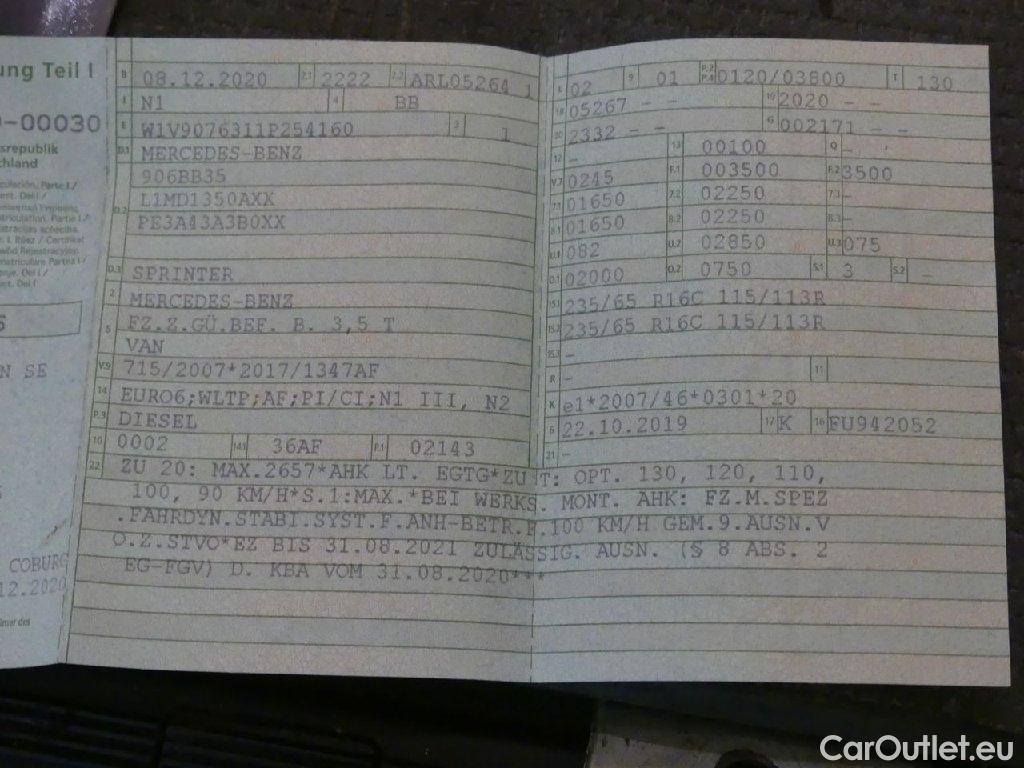 ung Teil I
0-00030
srepublik
chland
N SE
COBURG
12.2020
B 08.12.2020 2.1 2222 2.2 ARL05264 1
J N1 4 BB
E W1V9076311P254160 3 1
D.1 MERCEDES-BENZ
906BB35
D.2 L1MD1350AXX
PE3A43A3B0XX
D.3 SPRINTER
2 MERCEDES-BENZ
5 FZ.Z.GÜ.BEF. B. 3,5 T
VAN
V.9 715/2007*2017/1347AF
14 EURO6;WLTP;AF;PI/CI;N1 III, N2
P.3 DIESEL
10 0002 14.1 36AF P.1 02143
L 02 9 01 P.2 P.4 0120/03800 T 130
18 05267 - - 19 2020 - -
20 2332 - - G 002171 - -
12 - 13 00100 Q -
V.7 0245 F.1 003500 F.2 3500
7.1 01650 7.2 02250 7.3 -
8.1 01650 8.2 02250 8.3 -
U.1 082 U.2 02850 U.3 075
O.1 02000 O.2 0750 S.1 3 S.2 -
15.1 235/65 R16C 115/113R
15.2 235/65 R16C 115/113R
15.3 -
R - 11
K e1*2007/46*0301*20
6 22.10.2019 17 K 16 FU942052
21 -
22 ZU 20: MAX.2657*AHK LT. EGTG*ZU T: OPT. 130, 120, 110,
100, 90 KM/H*S.1:MAX.*BEI WERKS. MONT. AHK: FZ.M.SPEZ
.FAHRDYN.STABI.SYST.F.ANH-BETR.F.100 KM/H GEM.9.AUSN.V
O.Z.STVO*EZ BIS 31.08.2021 ZULÄSSIG. AUSN. (§ 8 ABS. 2
EG-FGV) D. KBA VOM 31.08.2020***
CarOutlet.eu